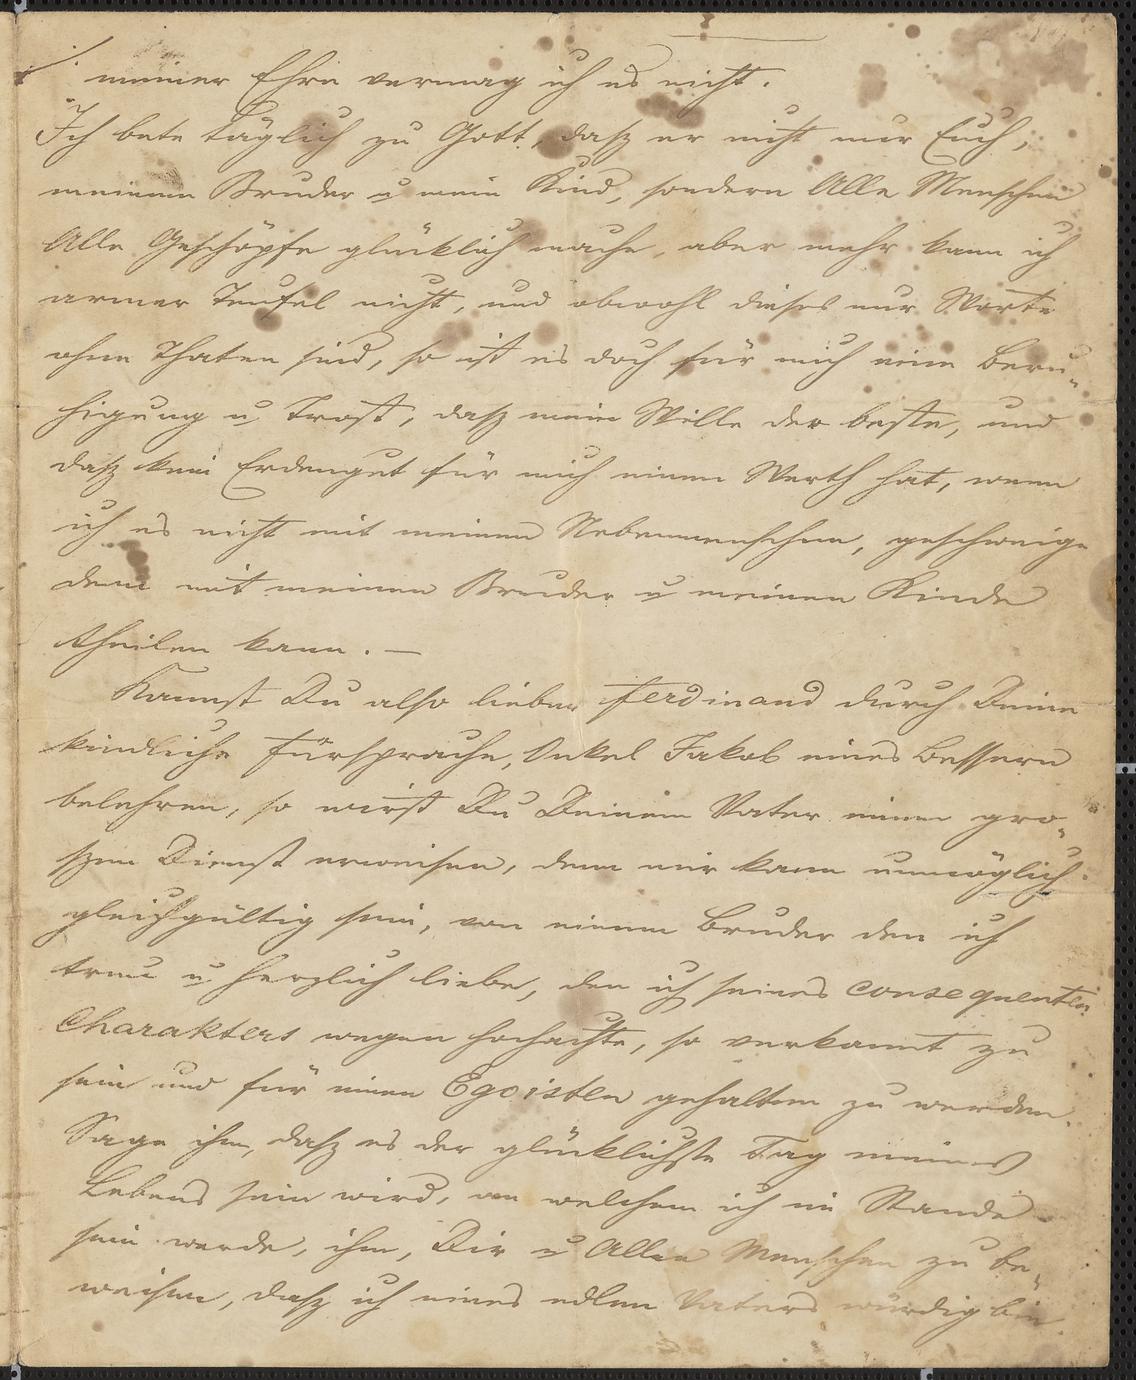 meiner Ehre vermag ich es nicht.
Ich bete täglich zu Gott, dasz er nicht nur Euch,
meinen Bruder u mein Kind, sondern Alle Menschen
Alle Geschöpfe glücklich mache, aber mehr kann ich
armer Teufel nicht, und obwohl dieses nur Worte
ohne Thaten sind, so ist es doch für mich eine Beru-
higung u Trost, dasz mein Wille der beste, und
dasz kein Erdengut für mich einen Werth hat, wenn
ich es nicht mit meinen Nebenmenschen, geschweige
denn mit meinen Bruder u meinen Kinde
theilen kann. —
Kannst Du also lieber Ferdinand durch Deine
kindliche Fürsprache, Onkel Jakob eines Bessern
belehren, so wirst Du Deinem Vater einen gro-
szen Dienst erweisen, denn mir kann unmöglich
gleichgültig sein, von einem Bruder den ich
treu u herzlich liebe, den ich seines consequenten
Charakters wegen hochachte, so verkannt zu
sein und für einen Egoisten gehalten zu werden.
Sage ihm, dasz es der glücklichste Tag meines
Lebens sein wird, an welchem ich im Stande
sein werde, ihm, Dir u Allen Menschen zu be-
weisen, dasz ich eines edlen Vaters würdig bin